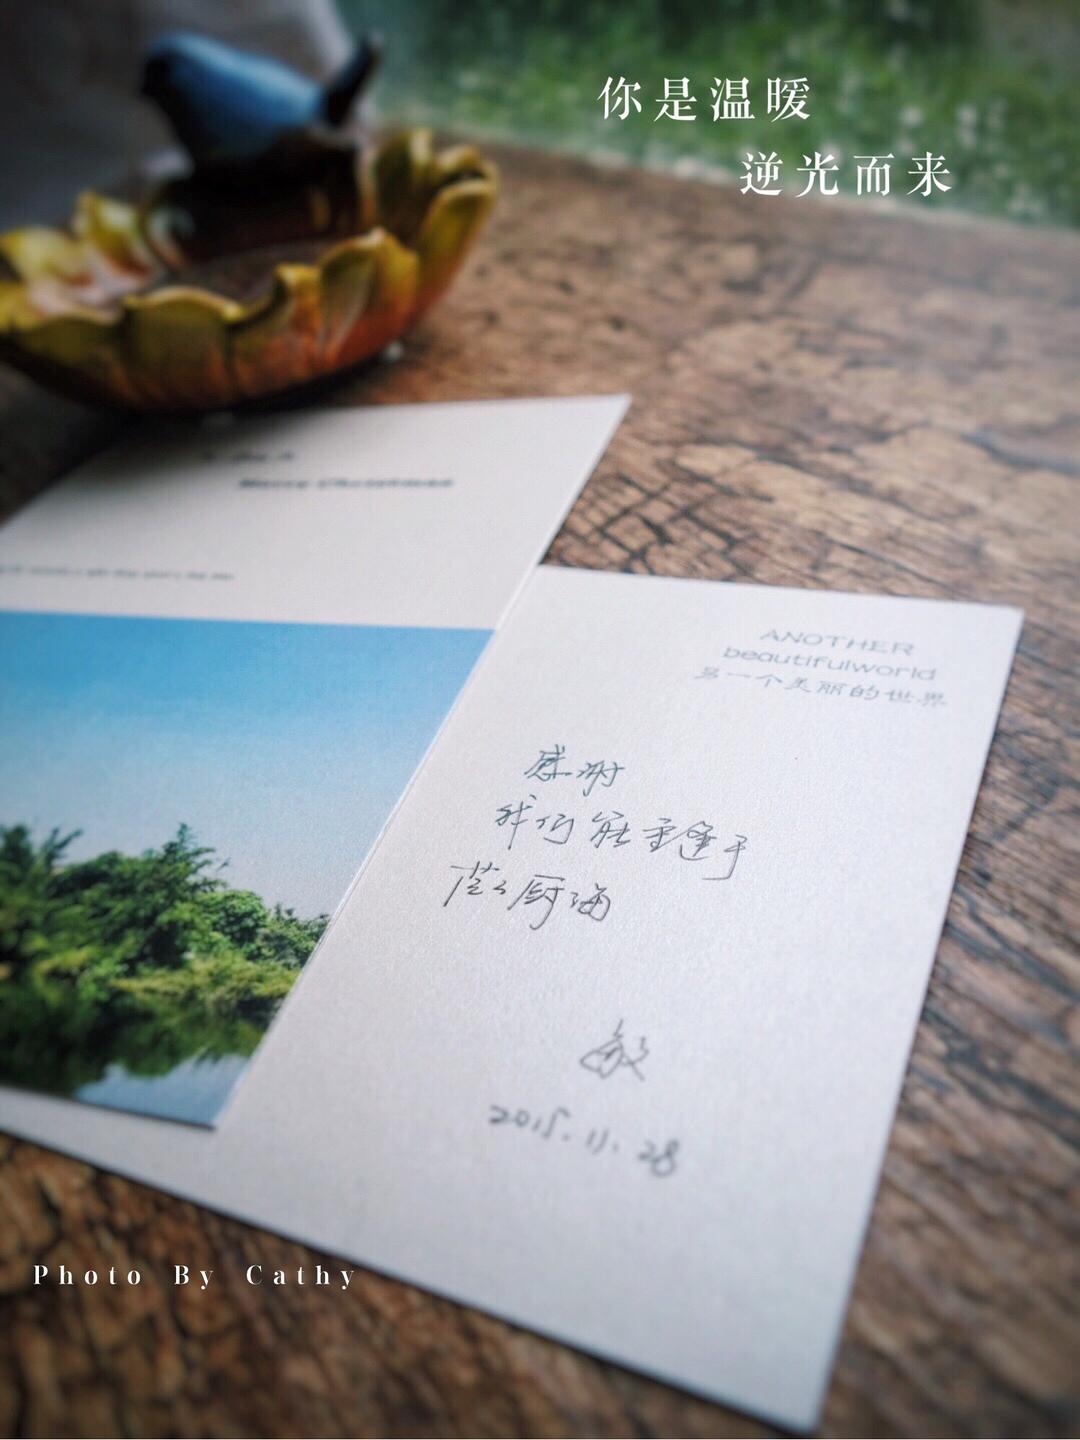 你是温暖
逆光而来
Merry Christmas
ANOTHER
beautifulworld
另一个美丽的世界
感谢
我们能重逢于
敏
2015.11.28
Photo By Cathy